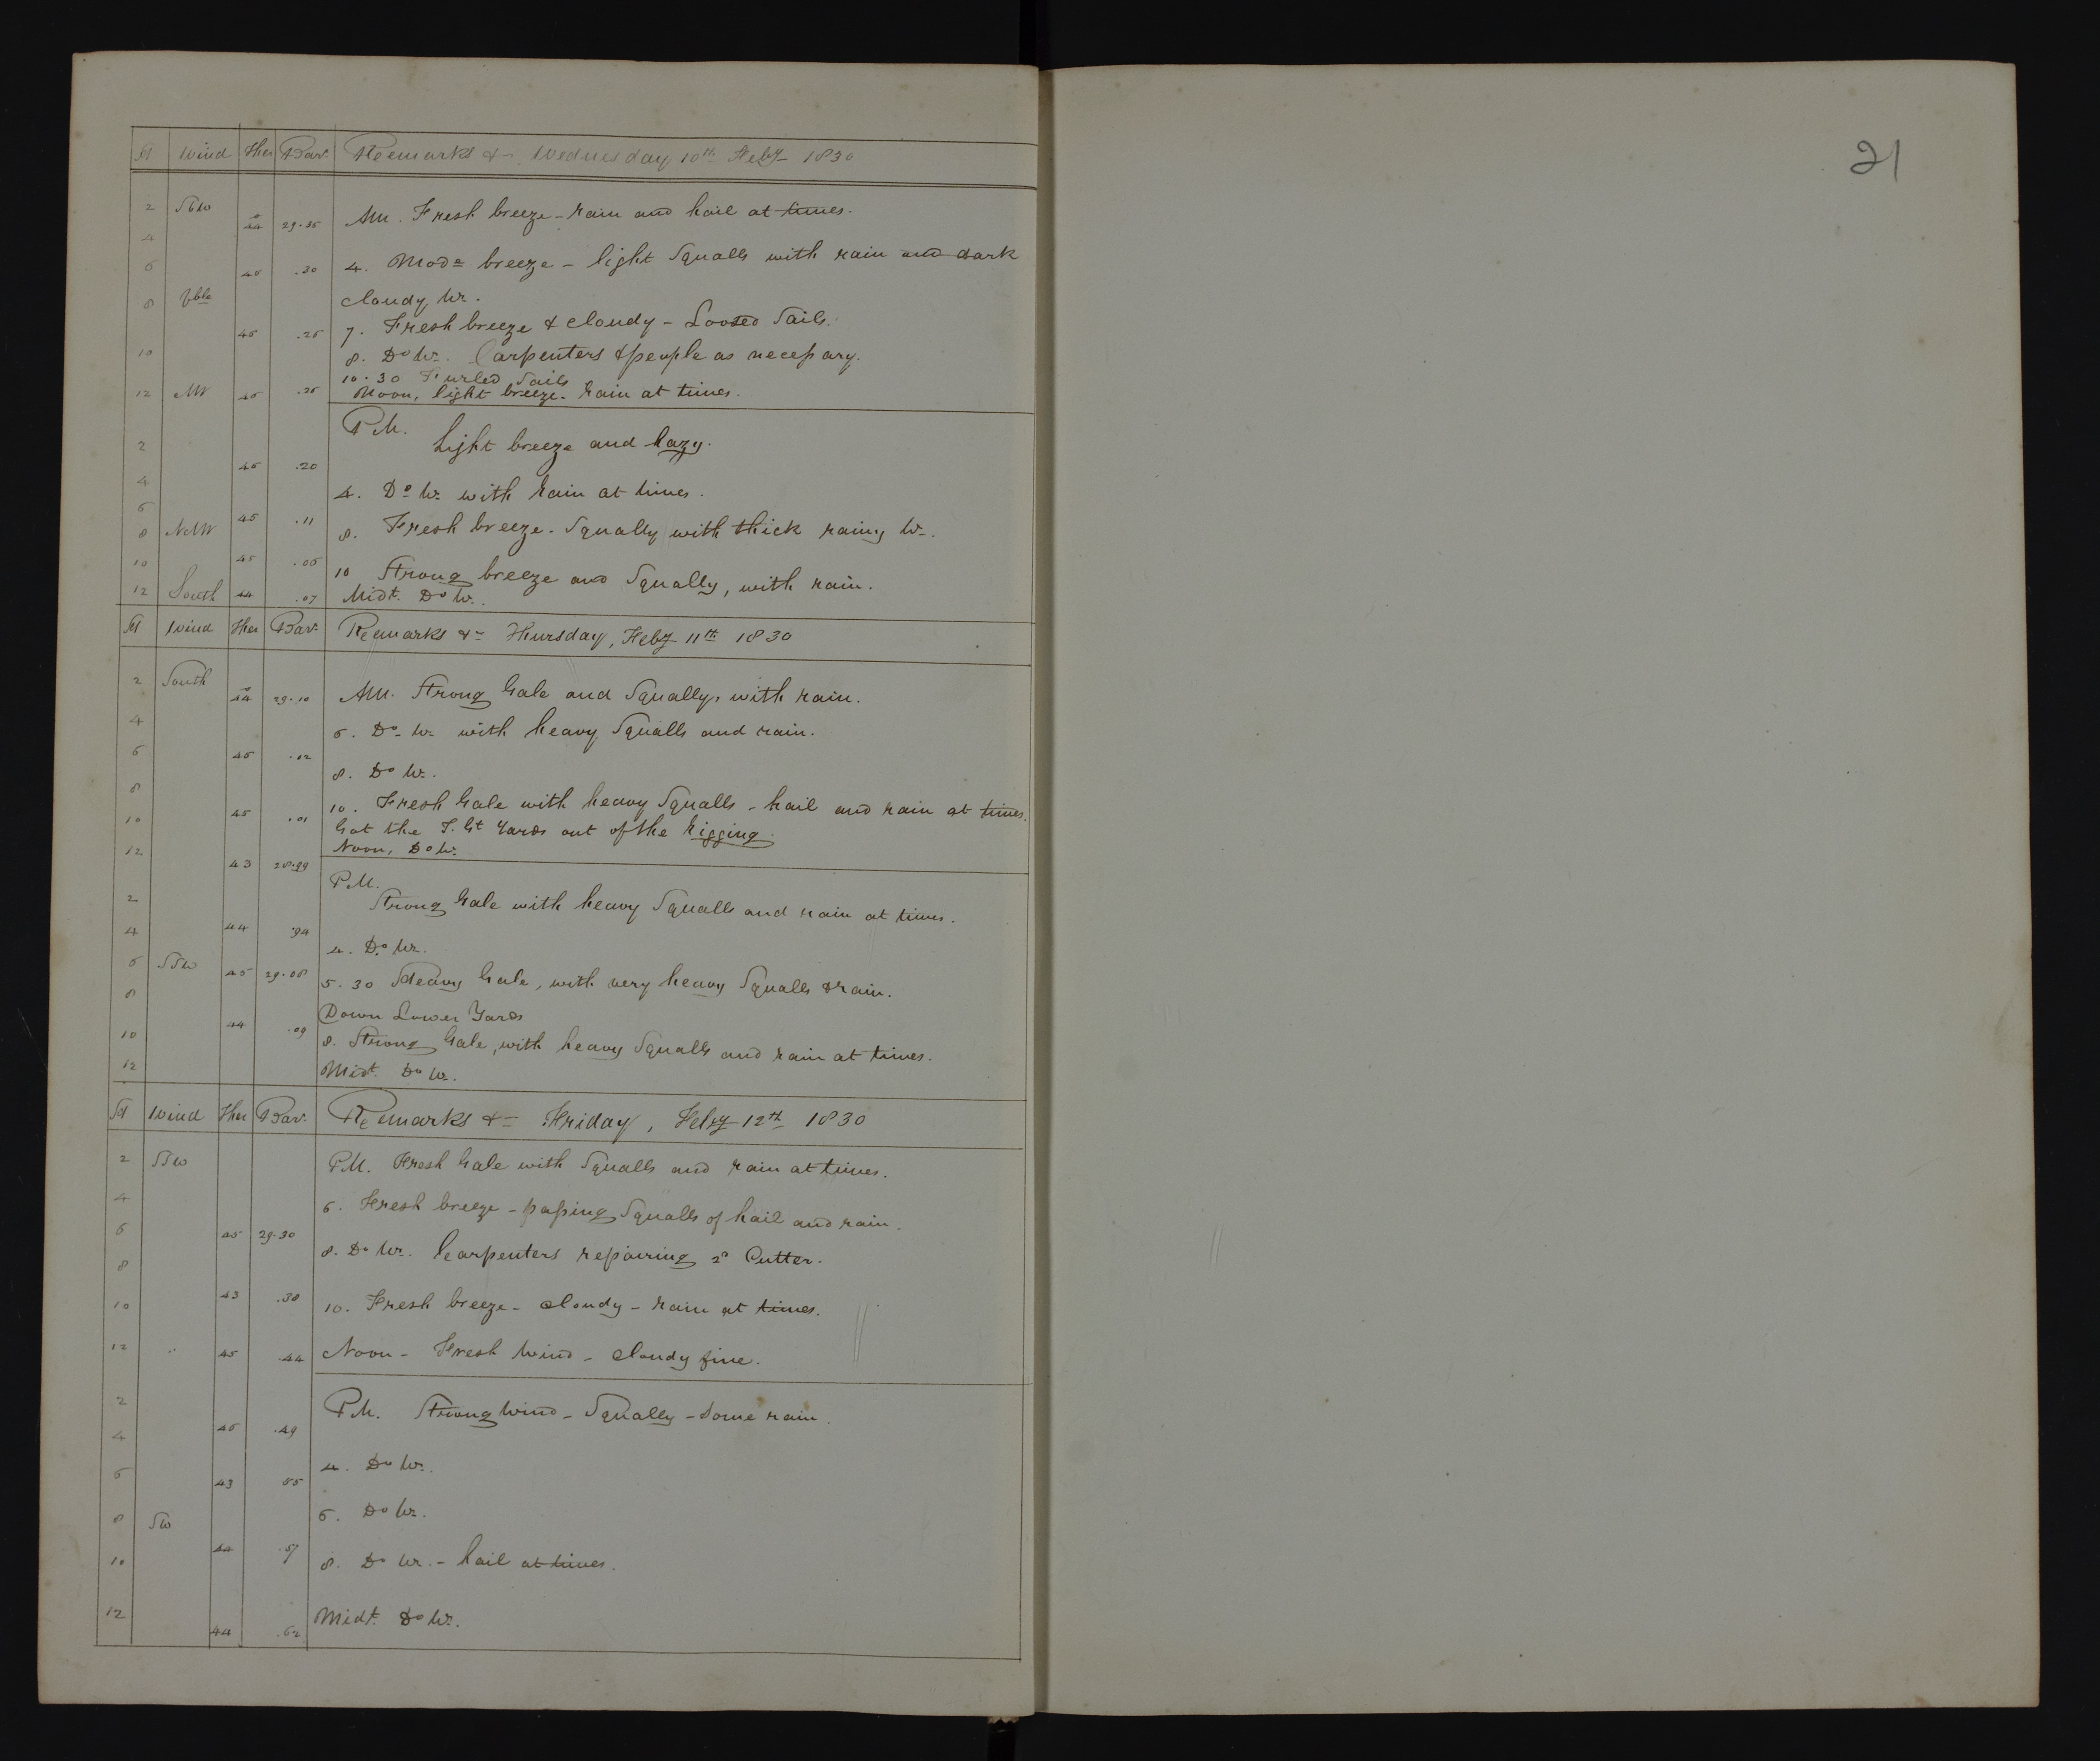 H Wind Ther Bar. Remarks &c Wednesday 10th Feby 1830
2 SbW 44 29.35 AM. Fresh breeze - rain and hail at times.
4
6 45 .30 4. Modte breeze - light Squalls with rain and dark
8 Vble cloudy Wr.
45 .25 7. Fresh breeze & cloudy - Loosed Sails.
10 8. Do Wr. Carpenters & people as necessary.
10.30 Furled Sails
12 45 .25 Noon, light breeze - rain at times.
P.M.
2 Light breeze and hazy.
45 .20
4 4. Do Wr with rain at times.
6 45 .11
8 8. Fresh breeze - Squally with thick rainy Wr.
10 45 10 Strong breeze and Squally, with rain.
12 South 44 .07 Midt. Do Wr.
H Wind Ther Bar. Remarks &c Thursday, Feby 11th 1830
2 South 44 29.10 AM. Strong Gale and Squally, with rain.
4 6. Do Wr with heavy Squalls and rain.
6 45 .02
8 8. Do Wr.
10 45 .01 10. Fresh Gale with heavy Squalls - hail and rain at times.
Got the T. Gt Yards out of the rigging.
12 43 28.99 Noon, Do Wr.
P.M.
2 Strong Gale with heavy Squalls and rain at times.
4 44 4. Do Wr.
6 SSW 45 29.08 5.30 Heavy Gale, with very heavy Squalls & rain.
8 Down Lower Yards
10 44 .09 8. Strong Gale, with heavy Squalls and rain at times.
12 Midt. Do Wr.
H Wind Ther Bar. Remarks &c Friday, Feby 12th 1830
2 SSW P.M. Fresh Gale with Squalls and rain at times.
4 6. Fresh breeze - passing Squalls of hail and rain.
6 45 29.30
8 8. Do Wr. Carpenters repairing 2d Cutter.
10 43 .38 10. Fresh breeze - cloudy - rain at times.
12 45 .44 Noon - Fresh Wind - cloudy fine.
2 P.M. Strong Wind - Squally - some rain.
4 46 .49
6 43 55 4. Do Wr.
8 SW 6. Do Wr.
10 44 .57 8. Do Wr. - hail at times.
12 44 .62 Midt. Do Wr.
21